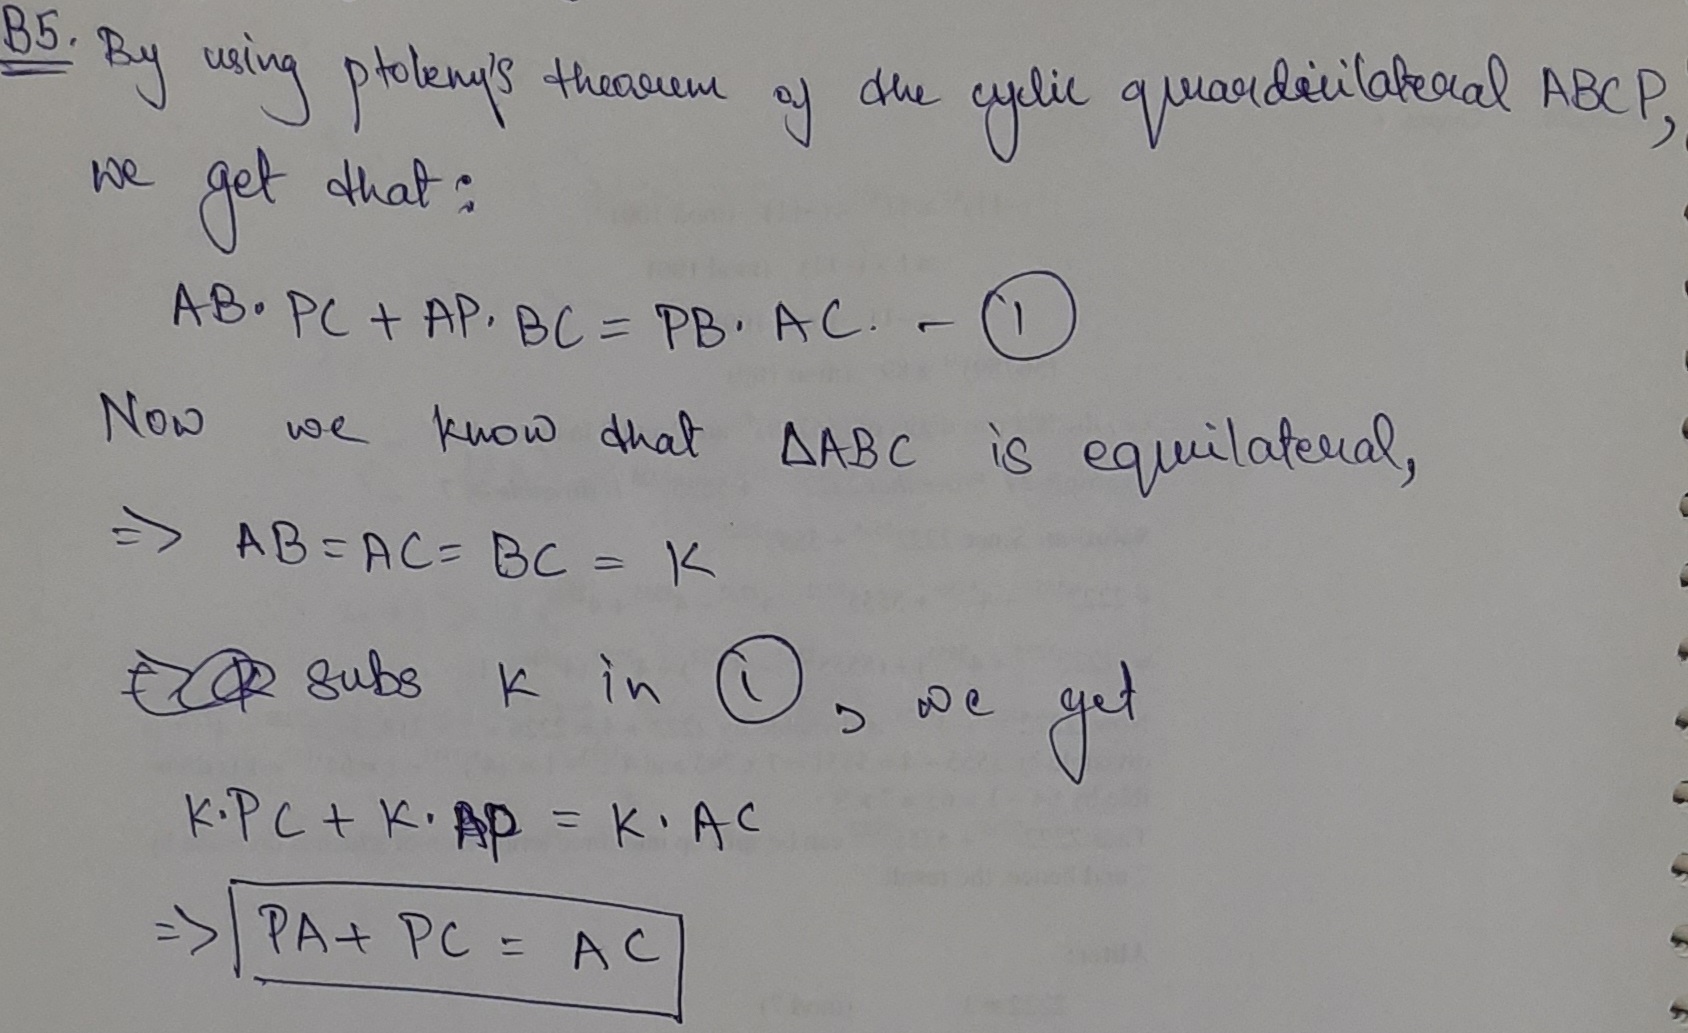 B5. By using ptolemy's thearem of the cyclic quardrilateral ABCP,
we get that:
AB. PC + AP. BC = PB. AC. - ①
Now we know that ΔABC is equilateral,
=> AB = AC = BC = K
subs K in ①, we get
K.PC + K. AP = K. AC
=> PA + PC = AC